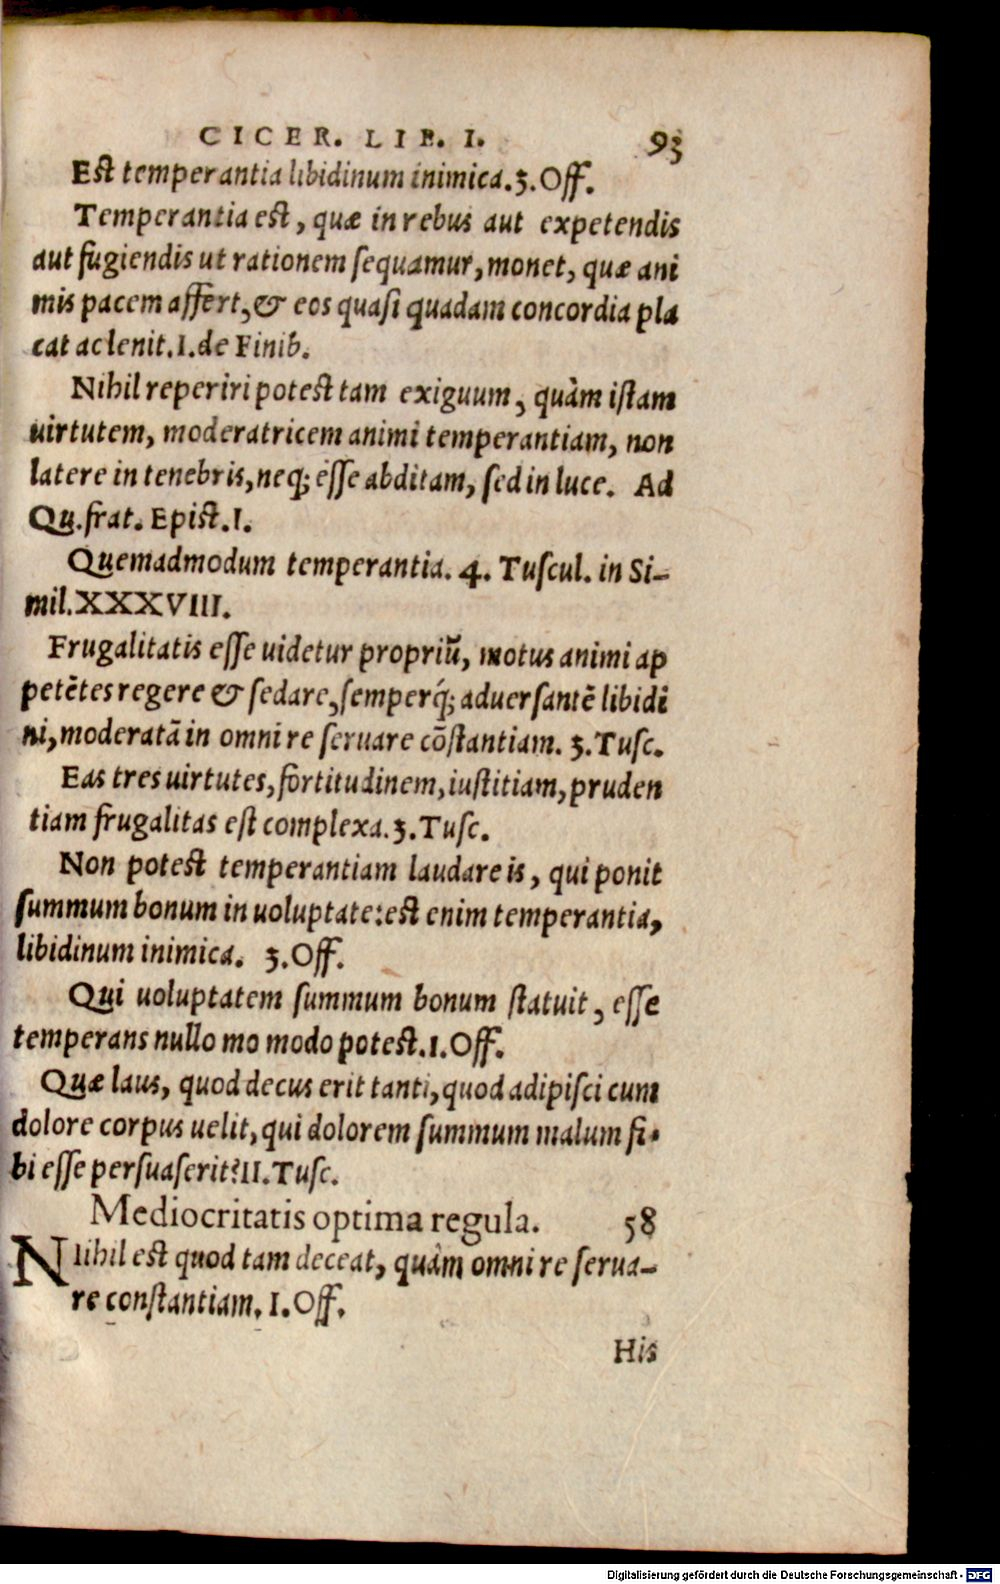 CICER. LIB. I. 93
Est temperantia libidinum inimica. 3. Off.
Temperantia est, quæ in rebus aut expetendis
aut fugiendis ut rationem sequamur, monet, quæ ani
mis pacem affert, & eos quasi quadam concordia pla
cat ac lenit. I. de Finib.
Nihil reperiri potest tam exiguum, quàm istam
uirtutem, moderatricem animi temperantiam, non
latere in tenebris, neq; esse abditam, sed in luce. Ad
Qu. frat. Epist. I.
Quemadmodum temperantia. 4. Tuscul. in Si-
mil. XXXVIII.
Frugalitatis esse uidetur propriũ, motus animi ap
petẽtes regere & sedare, semperq́; aduersantẽ libidi
ni, moderatã in omni re seruare cõstantiam. 3. Tusc.
Eas tres uirtutes, fortitudinem, iustitiam, pruden
tiam frugalitas est complexa. 3. Tusc.
Non potest temperantiam laudare is, qui ponit
summum bonum in uoluptate: est enim temperantia,
libidinum inimica. 3. Off.
Qui uoluptatem summum bonum statuit, esse
temperans nullo mo modo potest. 1. Off.
Quæ laus, quod decus erit tanti, quod adipisci cum
dolore corpus uelit, qui dolorem summum malum si-
bi esse persuaserit? II. Tusc.
Mediocritatis optima regula. 58
NIihil est quod tam deceat, quàm omni re serua-
re constantiam. I. Off.
His
Digitalisierung gefördert durch die Deutsche Forschungsgemeinschaft - DFG